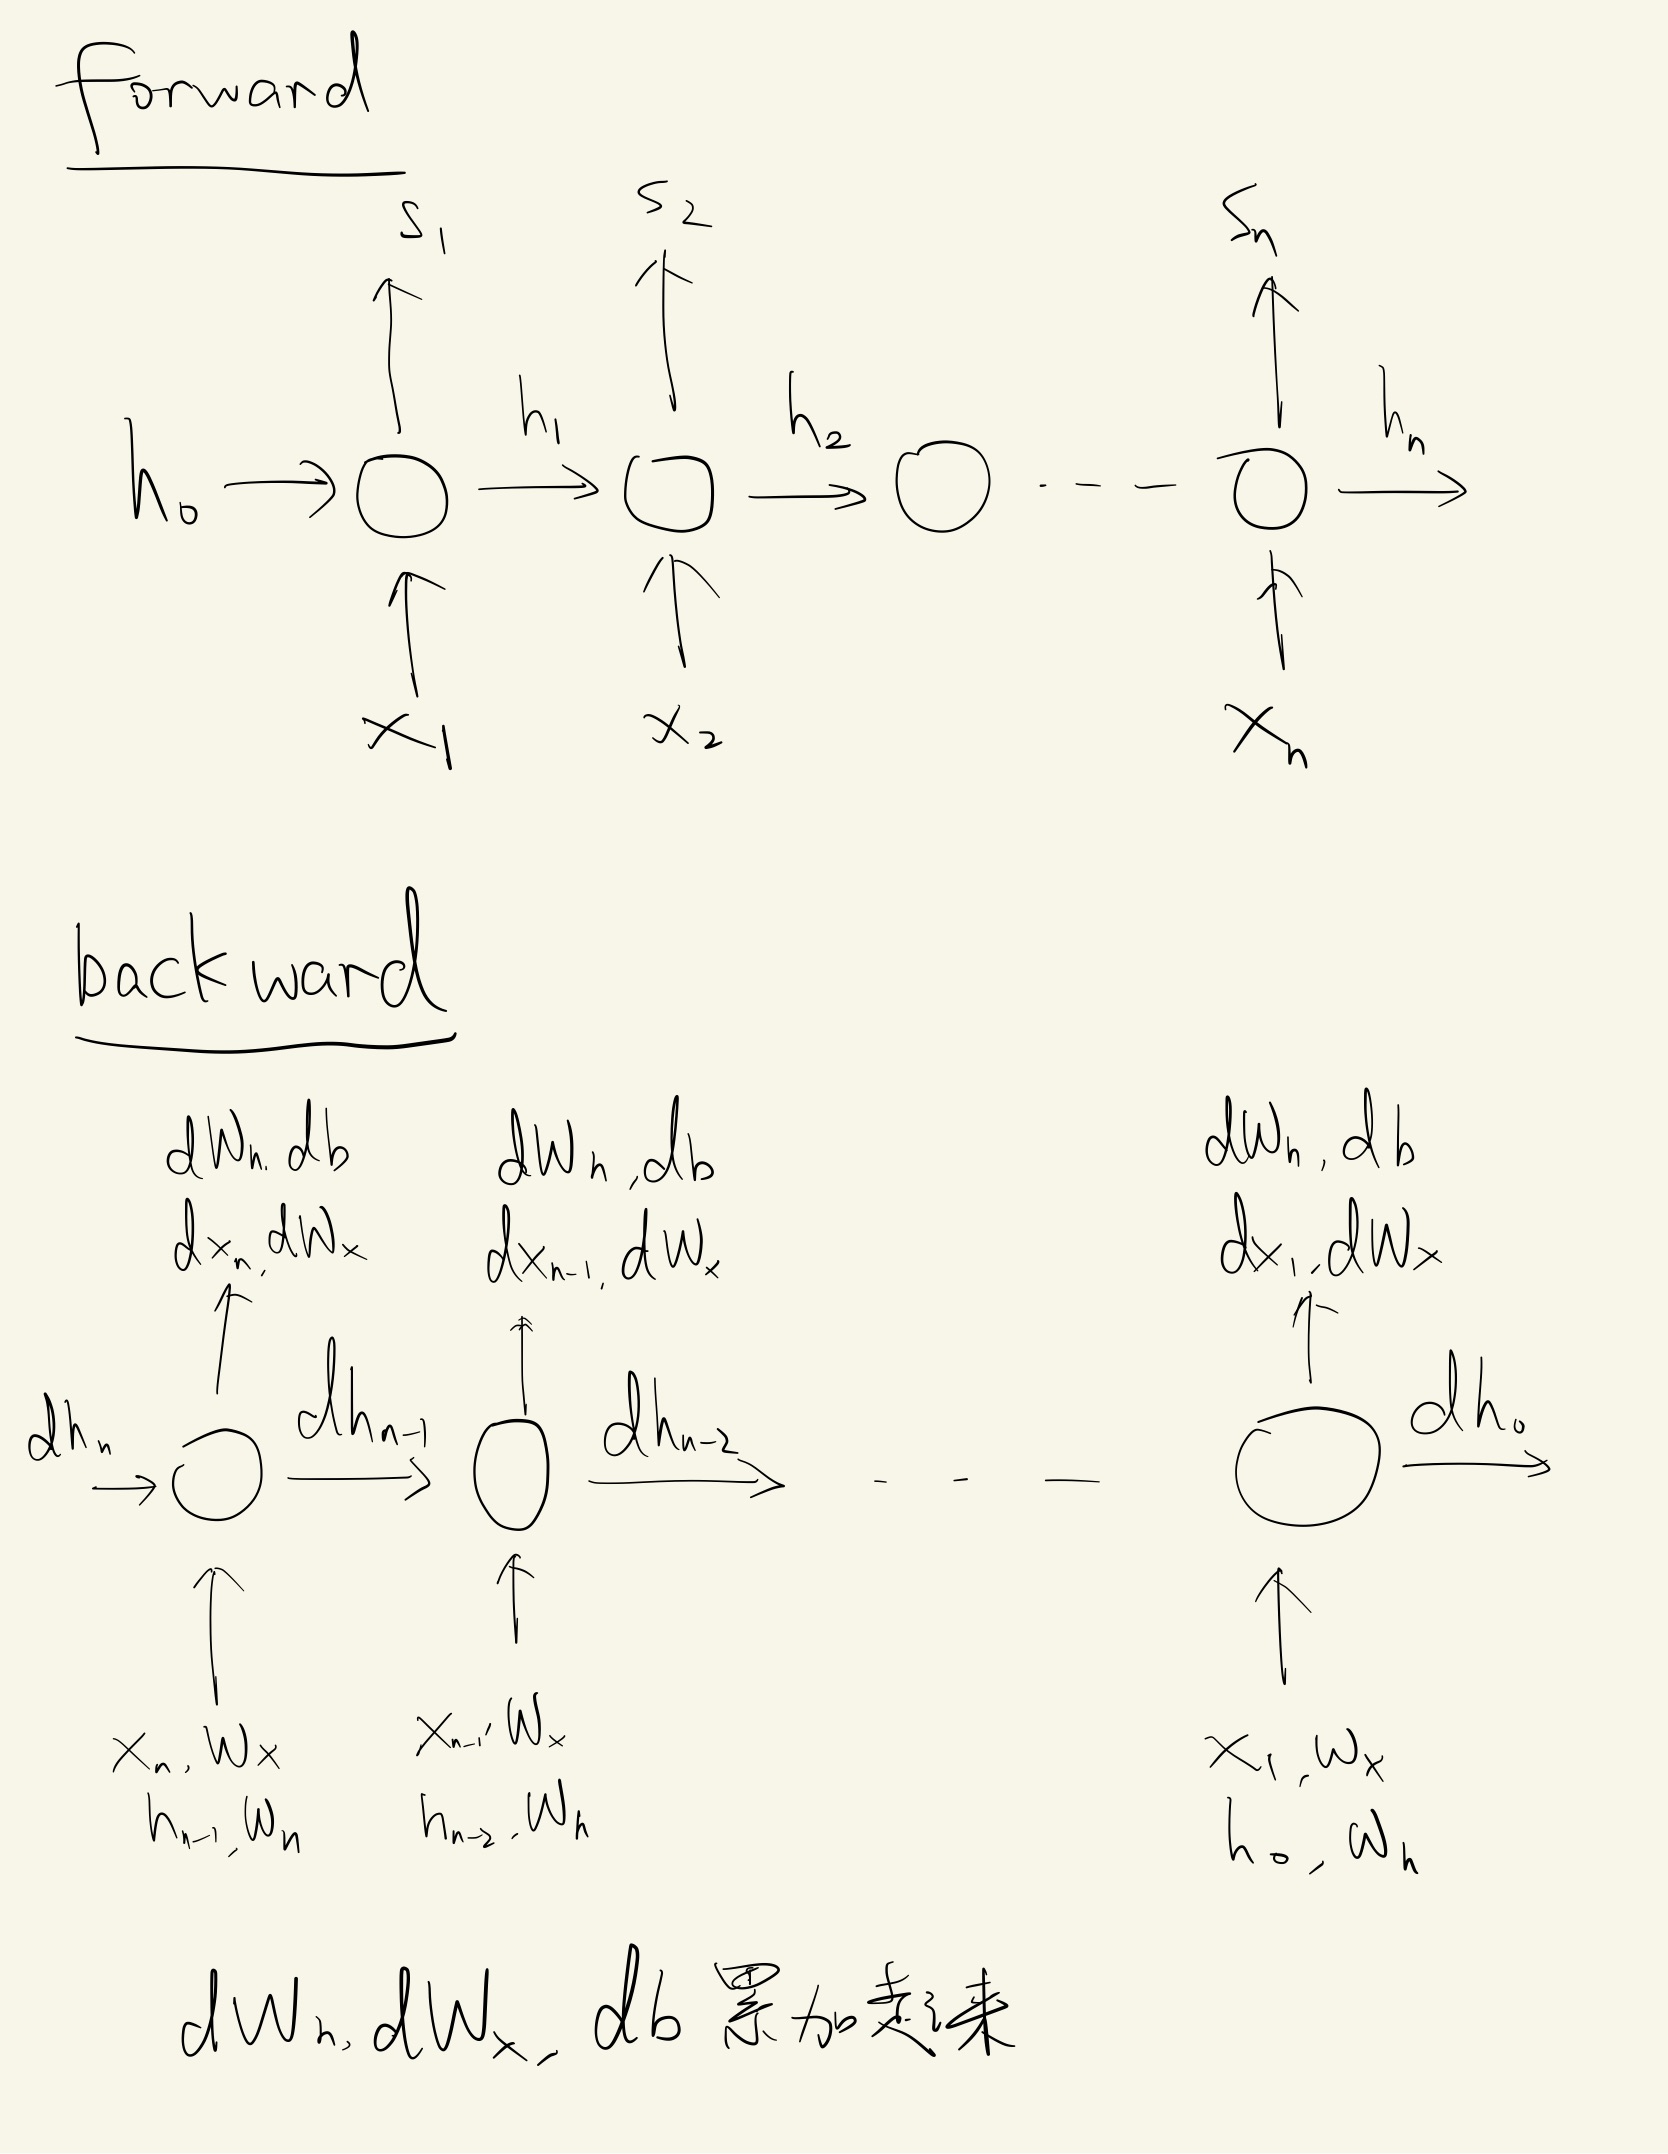 forward
s₁ s₂ sₙ
h₀ h₁ h₂ hₙ
x₁ x₂ xₙ
backward
dWₕ, db dWₕ, db dWₕ, db
dxₙ, dWₓ dxₙ₋₁, dWₓ dx₁, dWₓ
dhₙ dhₙ₋₁ dhₙ₋₂ dh₀
xₙ, Wₓ xₙ₋₁, Wₓ x₁, Wₓ
hₙ₋₁, Wₕ hₙ₋₂, Wₕ h₀, Wₕ
dWₕ, dWₓ, db 累加起来